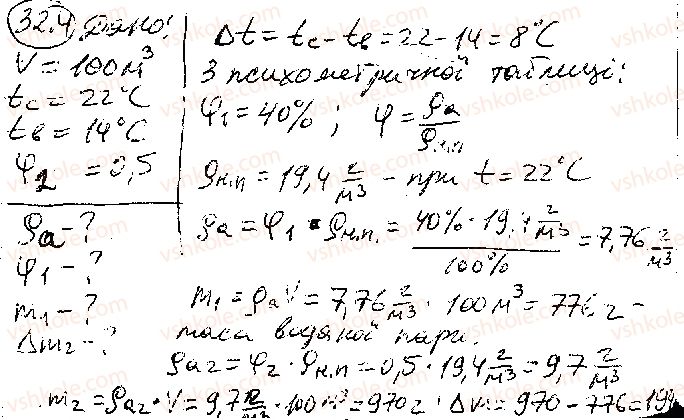 32.4 Дано:
V = 100 м³
tc = 22°C
tв = 14°C
φ2 = 0,5
ρa - ?
φ1 - ?
m1 - ?
Δm2 - ?
Δt = tc - tв = 22 - 14 = 8°C
З психометричної таблиці:
φ1 = 40% ; φ = ρa/ρн.п
ρн.п = 19,4 г/м³ - при t = 22°C
ρa = φ1 · ρн.п. = 40% · 19,4 г/м³ / 100% = 7,76 г/м³
m1 = ρaV = 7,76 г/м³ · 100 м³ = 776 г -
маса водяної пари.
ρa2 = φ2 · ρн.п = 0,5 · 19,4 г/м³ = 9,7 г/м³
m2 = ρa2 · V = 9,7 г/м³ · 100 м³ = 970 г ; Δm = 970 - 776 = 194
vshkole.com